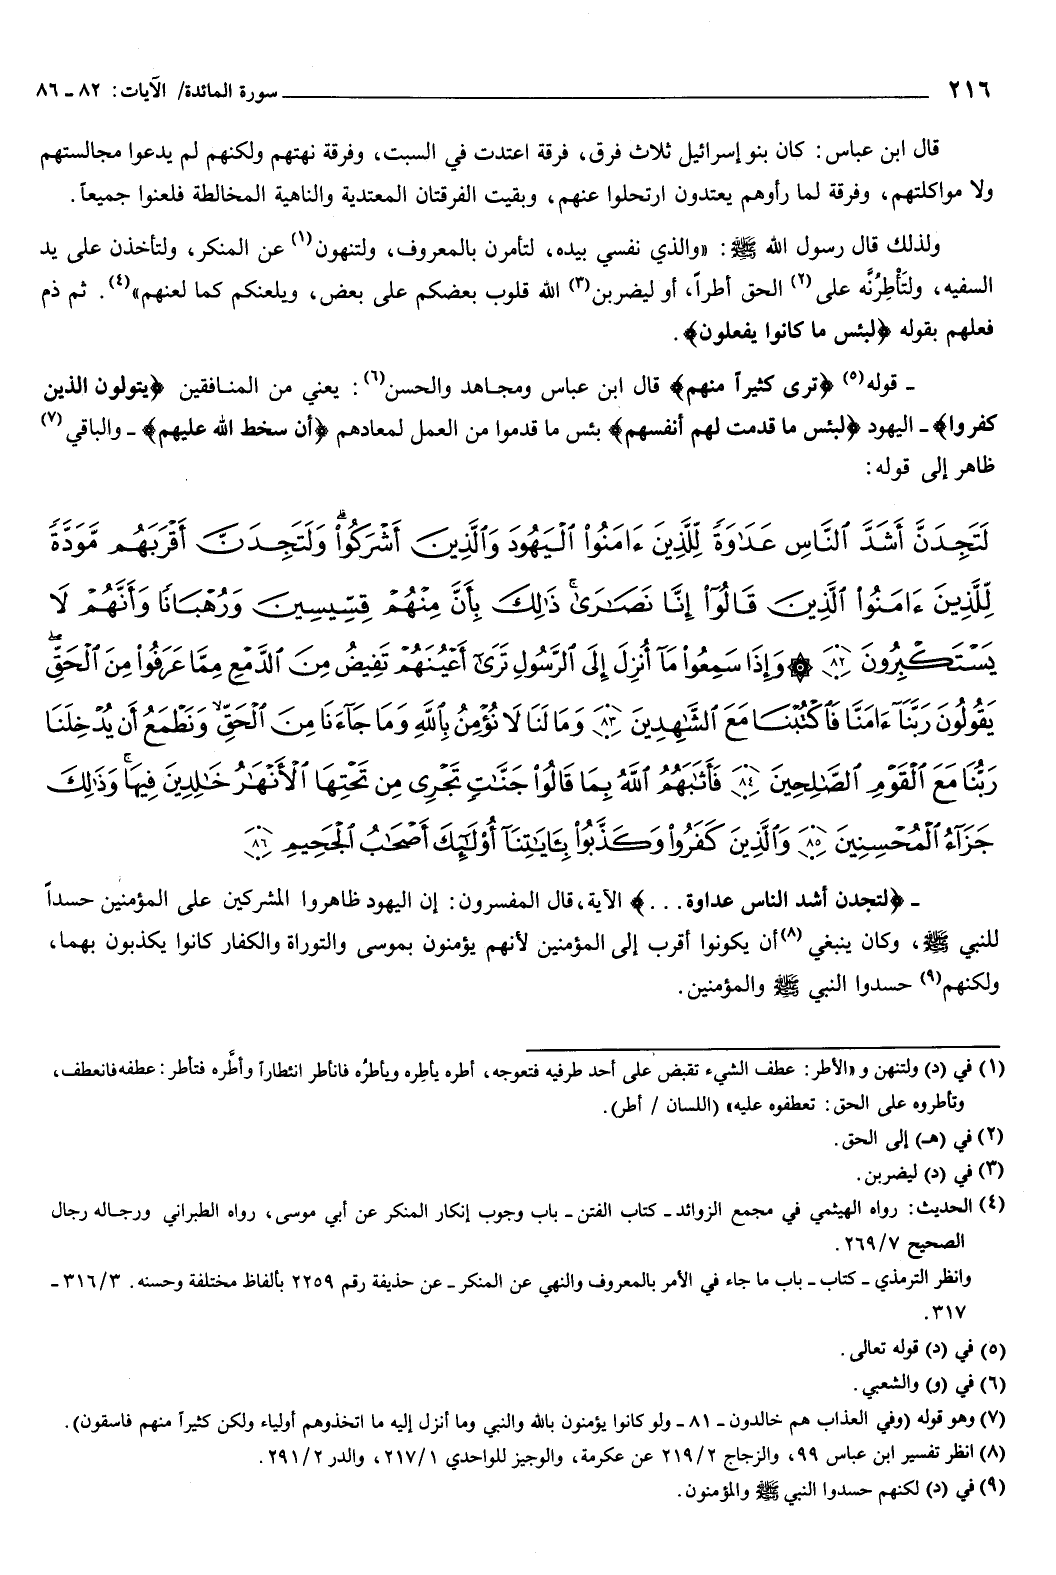 ٢١٦ ـــــــــ سورة المائدة/ الآيات: ٨٢ ـ ٨٦
قال ابن عباس: كان بنو إسرائيل ثلاث فرق، فرقة اعتدت في السبت، وفرقة نهتهم ولكنهم لم يدعوا مجالستهم
ولا مواكلتهم، وفرقة لما رأوهم يعتدون ارتحلوا عنهم، وبقيت الفرقتان المعتدية والناهية المخالطة فلعنوا جميعاً.
ولذلك قال رسول الله ﷺ: «والذي نفسي بيده، لتأمرن بالمعروف، ولتنهون(١) عن المنكر، ولتأخذن على يد
السفيه، ولتَأْطِرُنَّه على(٢) الحق أطراً، أو ليضربن(٣) الله قلوب بعضكم على بعض، ويلعنكم كما لعنهم»(٤). ثم ذم
فعلهم بقوله ﴿لبئس ما كانوا يفعلون﴾.
ـ قوله(٥) ﴿ترى كثيراً منهم﴾ قال ابن عباس ومجاهد والحسن(٦): يعني من المنافقين ﴿يتولون الذين
كفروا﴾ ـ اليهود ﴿لبئس ما قدمت لهم أنفسهم﴾ بئس ما قدموا من العمل لمعادهم ﴿أن سخط الله عليهم﴾ ـ والباقي(٧)
ظاهر إلى قوله:
لَتَجِدَنَّ أَشَدَّ ٱلنَّاسِ عَدَٰوَةً لِّلَّذِينَ ءَامَنُوا۟ ٱلْيَهُودَ وَٱلَّذِينَ أَشْرَكُوا۟ ۖ وَلَتَجِدَنَّ أَقْرَبَهُم مَّوَدَّةً
لِّلَّذِينَ ءَامَنُوا۟ ٱلَّذِينَ قَالُوٓا۟ إِنَّا نَصَٰرَىٰ ۚ ذَٰلِكَ بِأَنَّ مِنْهُمْ قِسِّيسِينَ وَرُهْبَانًا وَأَنَّهُمْ لَا
يَسْتَكْبِرُونَ ٨٢ ۞ وَإِذَا سَمِعُوا۟ مَآ أُنزِلَ إِلَى ٱلرَّسُولِ تَرَىٰٓ أَعْيُنَهُمْ تَفِيضُ مِنَ ٱلدَّمْعِ مِمَّا عَرَفُوا۟ مِنَ ٱلْحَقِّ ۖ
يَقُولُونَ رَبَّنَآ ءَامَنَّا فَٱكْتُبْنَا مَعَ ٱلشَّٰهِدِينَ ٨٣ وَمَا لَنَا لَا نُؤْمِنُ بِٱللَّهِ وَمَا جَآءَنَا مِنَ ٱلْحَقِّ ۙ وَنَطْمَعُ أَن يُدْخِلَنَا
رَبُّنَا مَعَ ٱلْقَوْمِ ٱلصَّٰلِحِينَ ٨٤ فَأَثَٰبَهُمُ ٱللَّهُ بِمَا قَالُوا۟ جَنَّٰتٍ تَجْرِى مِن تَحْتِهَا ٱلْأَنْهَٰرُ خَٰلِدِينَ فِيهَا ۚ وَذَٰلِكَ
جَزَآءُ ٱلْمُحْسِنِينَ ٨٥ وَٱلَّذِينَ كَفَرُوا۟ وَكَذَّبُوا۟ بِـَٔايَٰتِنَآ أُو۟لَٰٓئِكَ أَصْحَٰبُ ٱلْجَحِيمِ ٨٦
ـ ﴿لتجدن أشد الناس عداوة. . .﴾ الآية، قال المفسرون: إن اليهود ظاهروا المشركين على المؤمنين حسداً
للنبي ﷺ، وكان ينبغي(٨) أن يكونوا أقرب إلى المؤمنين لأنهم يؤمنون بموسى والتوراة والكفار كانوا يكذبون بهما،
ولكنهم(٩) حسدوا النبي ﷺ والمؤمنين.
(١) في (د) ولتنهن و «الأطر: عطف الشيء تقبض على أحد طرفيه فتعوجه، أطره يأطِره ويأطرُه فانأطر انئطاراً وأطَّره فتأطر: عطفه فانعطف،
وتأطروه على الحق: تعطفوه عليه» (اللسان / أطر).
(٢) في (هـ) إلى الحق.
(٣) في (د) ليضربن.
(٤) الحديث: رواه الهيثمي في مجمع الزوائد ـ كتاب الفتن ـ باب وجوب إنكار المنكر عن أبي موسى، رواه الطبراني ورجاله رجال
الصحيح ٢٦٩/٧.
وانظر الترمذي ـ كتاب ـ باب ما جاء في الأمر بالمعروف والنهي عن المنكر ـ عن حذيفة رقم ٢٢٥٩ بألفاظ مختلفة وحسنه. ٣١٦/٣ ـ
٣١٧.
(٥) في (د) قوله تعالى.
(٦) في (و) والشعبي.
(٧) وهو قوله (وفي العذاب هم خالدون ـ ٨١ ـ ولو كانوا يؤمنون بالله والنبي وما أنزل إليه ما اتخذوهم أولياء ولكن كثيراً منهم فاسقون).
(٨) انظر تفسير ابن عباس ٩٩، والزجاج ٢١٩/٢ عن عكرمة، والوجيز للواحدي ٢١٧/١، والدر ٢٩١/٢.
(٩) في (د) لكنهم حسدوا النبي ﷺ والمؤمنون.